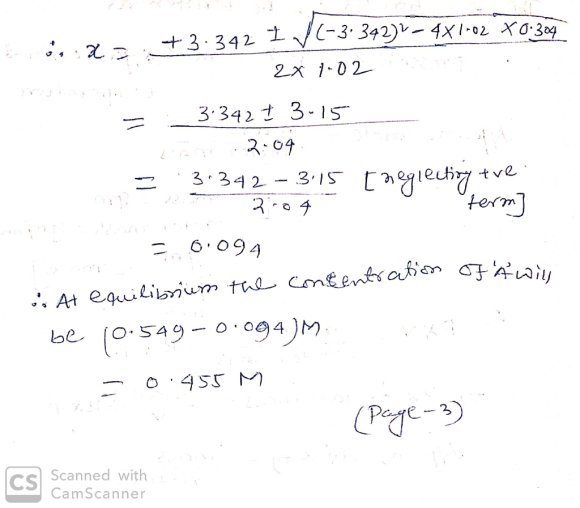 ∴ x = +3.342 ± √((-3.342)² - 4×1.02 ×0.304) / 2× 1.02
= 3.342 ± 3.15 / 2.04
= 3.342 - 3.15 / 2.04 [neglecting +ve term]
= 0.094
∴ At equilibrium the concentration of 'A' will
be (0.549 - 0.094)M
= 0.455 M
(Page-3)
CS Scanned with
CamScanner